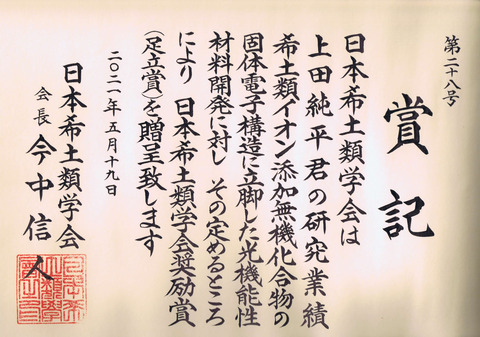 第二十八号
賞記
日本希土類学会は
上田純平君の研究業績
希土類イオン添加無機化合物の
固体電子構造に立脚した光機能性
材料開発に対し その定めるところ
により 日本希土類学会奨励賞
(足立賞)を贈呈致します
二〇二一年五月十九日
日本希土類学会
会長 今中信人